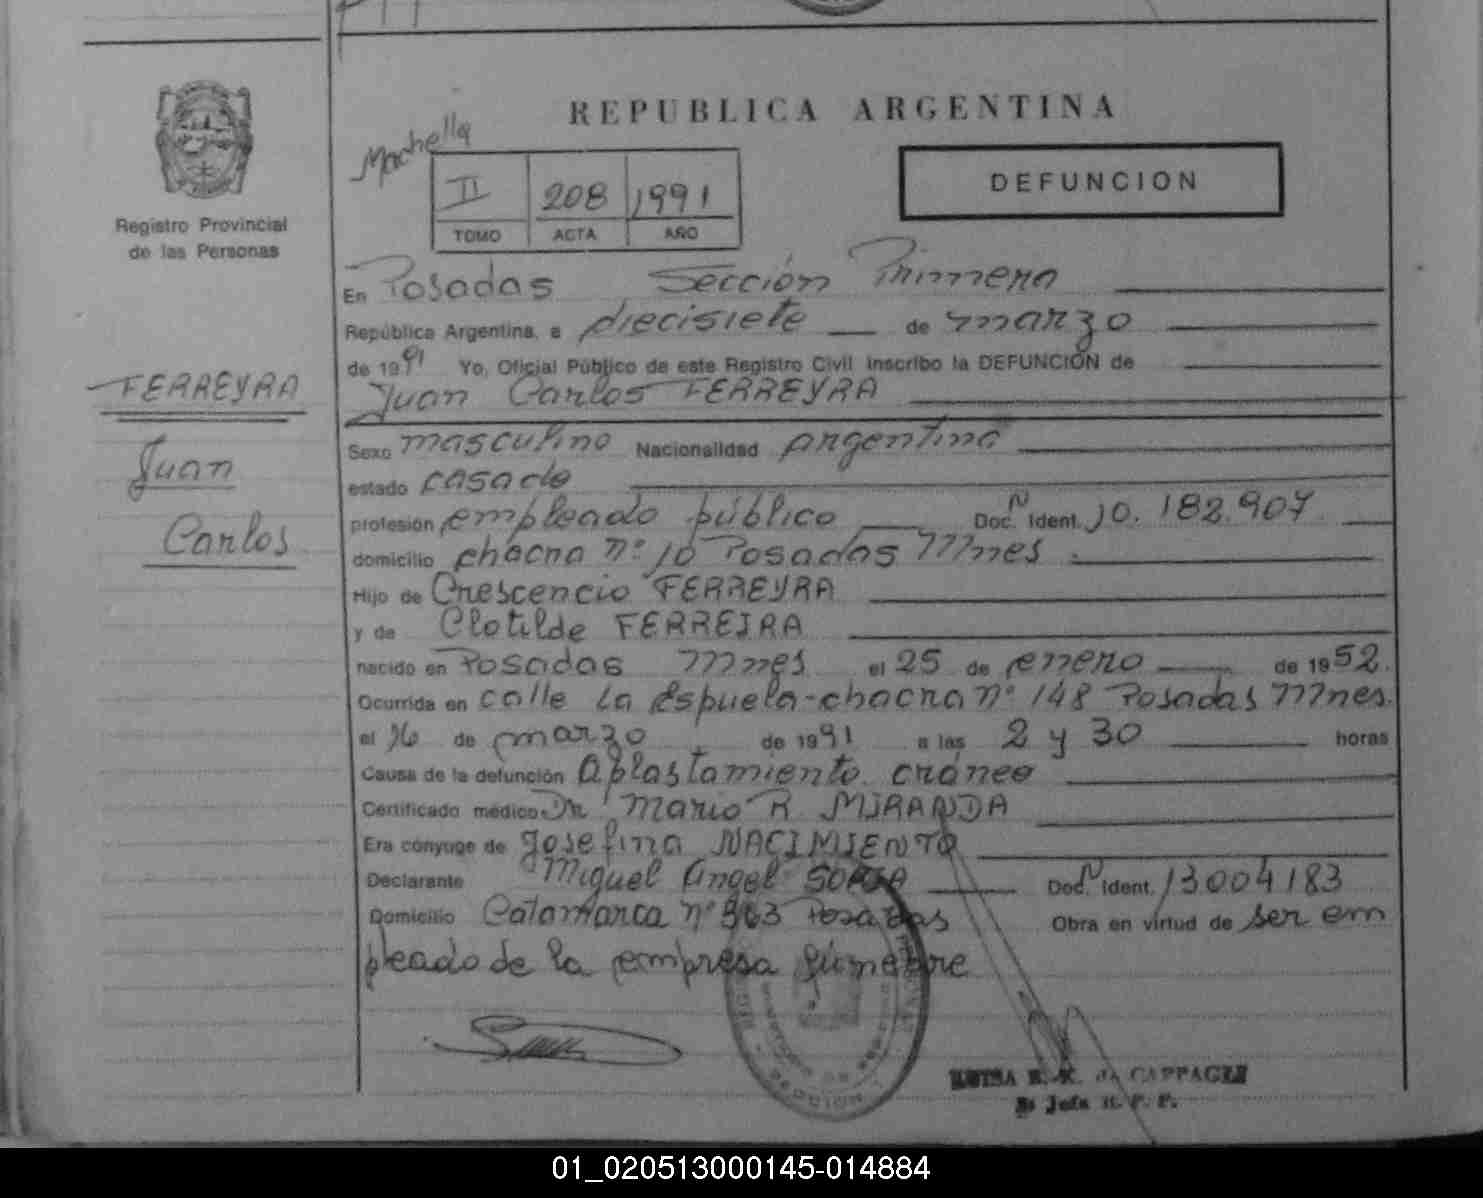 REPUBLICA ARGENTINA
Machella
II 208 1991
TOMO ACTA AÑO
DEFUNCION
Registro Provincial
de las Personas
FERREYRA
Juan
Carlos
En Posadas Sección Primera
República Argentina, a diecisiete de marzo
de 1991 Yo, Oficial Público de este Registro Civil inscribo la DEFUNCION de
Juan Carlos FERREYRA
Sexo masculino Nacionalidad argentina
estado casado
profesión empleado público Doc. N Ident. 10.182.907
domicilio chacra nº 10 Posadas Mnes
Hijo de Crescencio FERREYRA
y de Clotilde FERREIRA
nacido en Posadas Mnes el 25 de enero de 1952.
Ocurrida en calle La Espuela-chacra nº 148 Posadas Mnes.
el 16 de marzo de 1991 a las 2 y 30 horas
Causa de la defunción Aplastamiento cráneo
Certificado médico Dr. Mario R. MIRANDA
Era cónyuge de Josefina NACIMIENTO
Declarante Miguel Angel Doc. N Ident. 13004183
Domicilio Catamarca nº Posadas Obra en virtud de ser em
pleado de la empresa fúnebre
de CAPPAGLI
Jefa R. P. P.
01_020513000145-014884